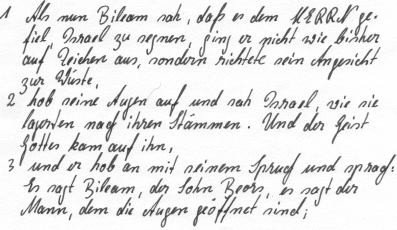 1 Als nun Bileam sah, daß es dem HERRN ge-
fiel, Israel zu segnen, ging er nicht wie bisher
auf Zeichen aus, sondern richtete sein Angesicht
zur Wüste,
2 hob seine Augen auf und sah Israel, wie sie
lagerten nach ihren Stämmen. Und der Geist
Gottes kam auf ihn,
3 und er hob an mit seinem Spruch und sprach:
Es sagt Bileam, der Sohn Beors, es sagt der
Mann, dem die Augen geöffnet sind;